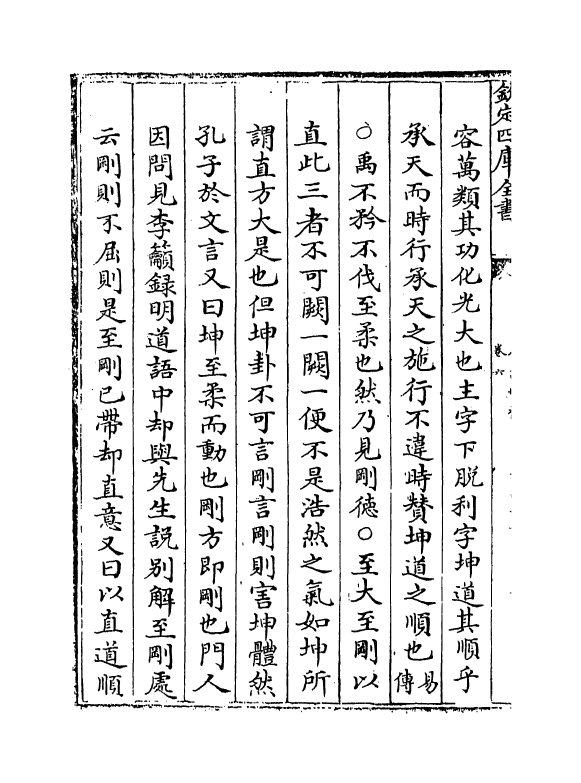 欽定四庫全書
卷六
容萬類其功化光大也主字下脱利字坤道其順乎
承天而時行承天之施行不違時贊坤道之順也易傳
○禹不矜不伐至柔也然乃見剛德○至大至剛以
直此三者不可闕一闕一便不是浩然之氣如坤所
謂直方大是也但坤卦不可言剛言剛則害坤體然
孔子於文言又曰坤至柔而動也剛方即剛也門人
因問見李籲録明道語中却與先生説别解至剛處
云剛則不屈則是至剛已帶却直意又曰以直道順